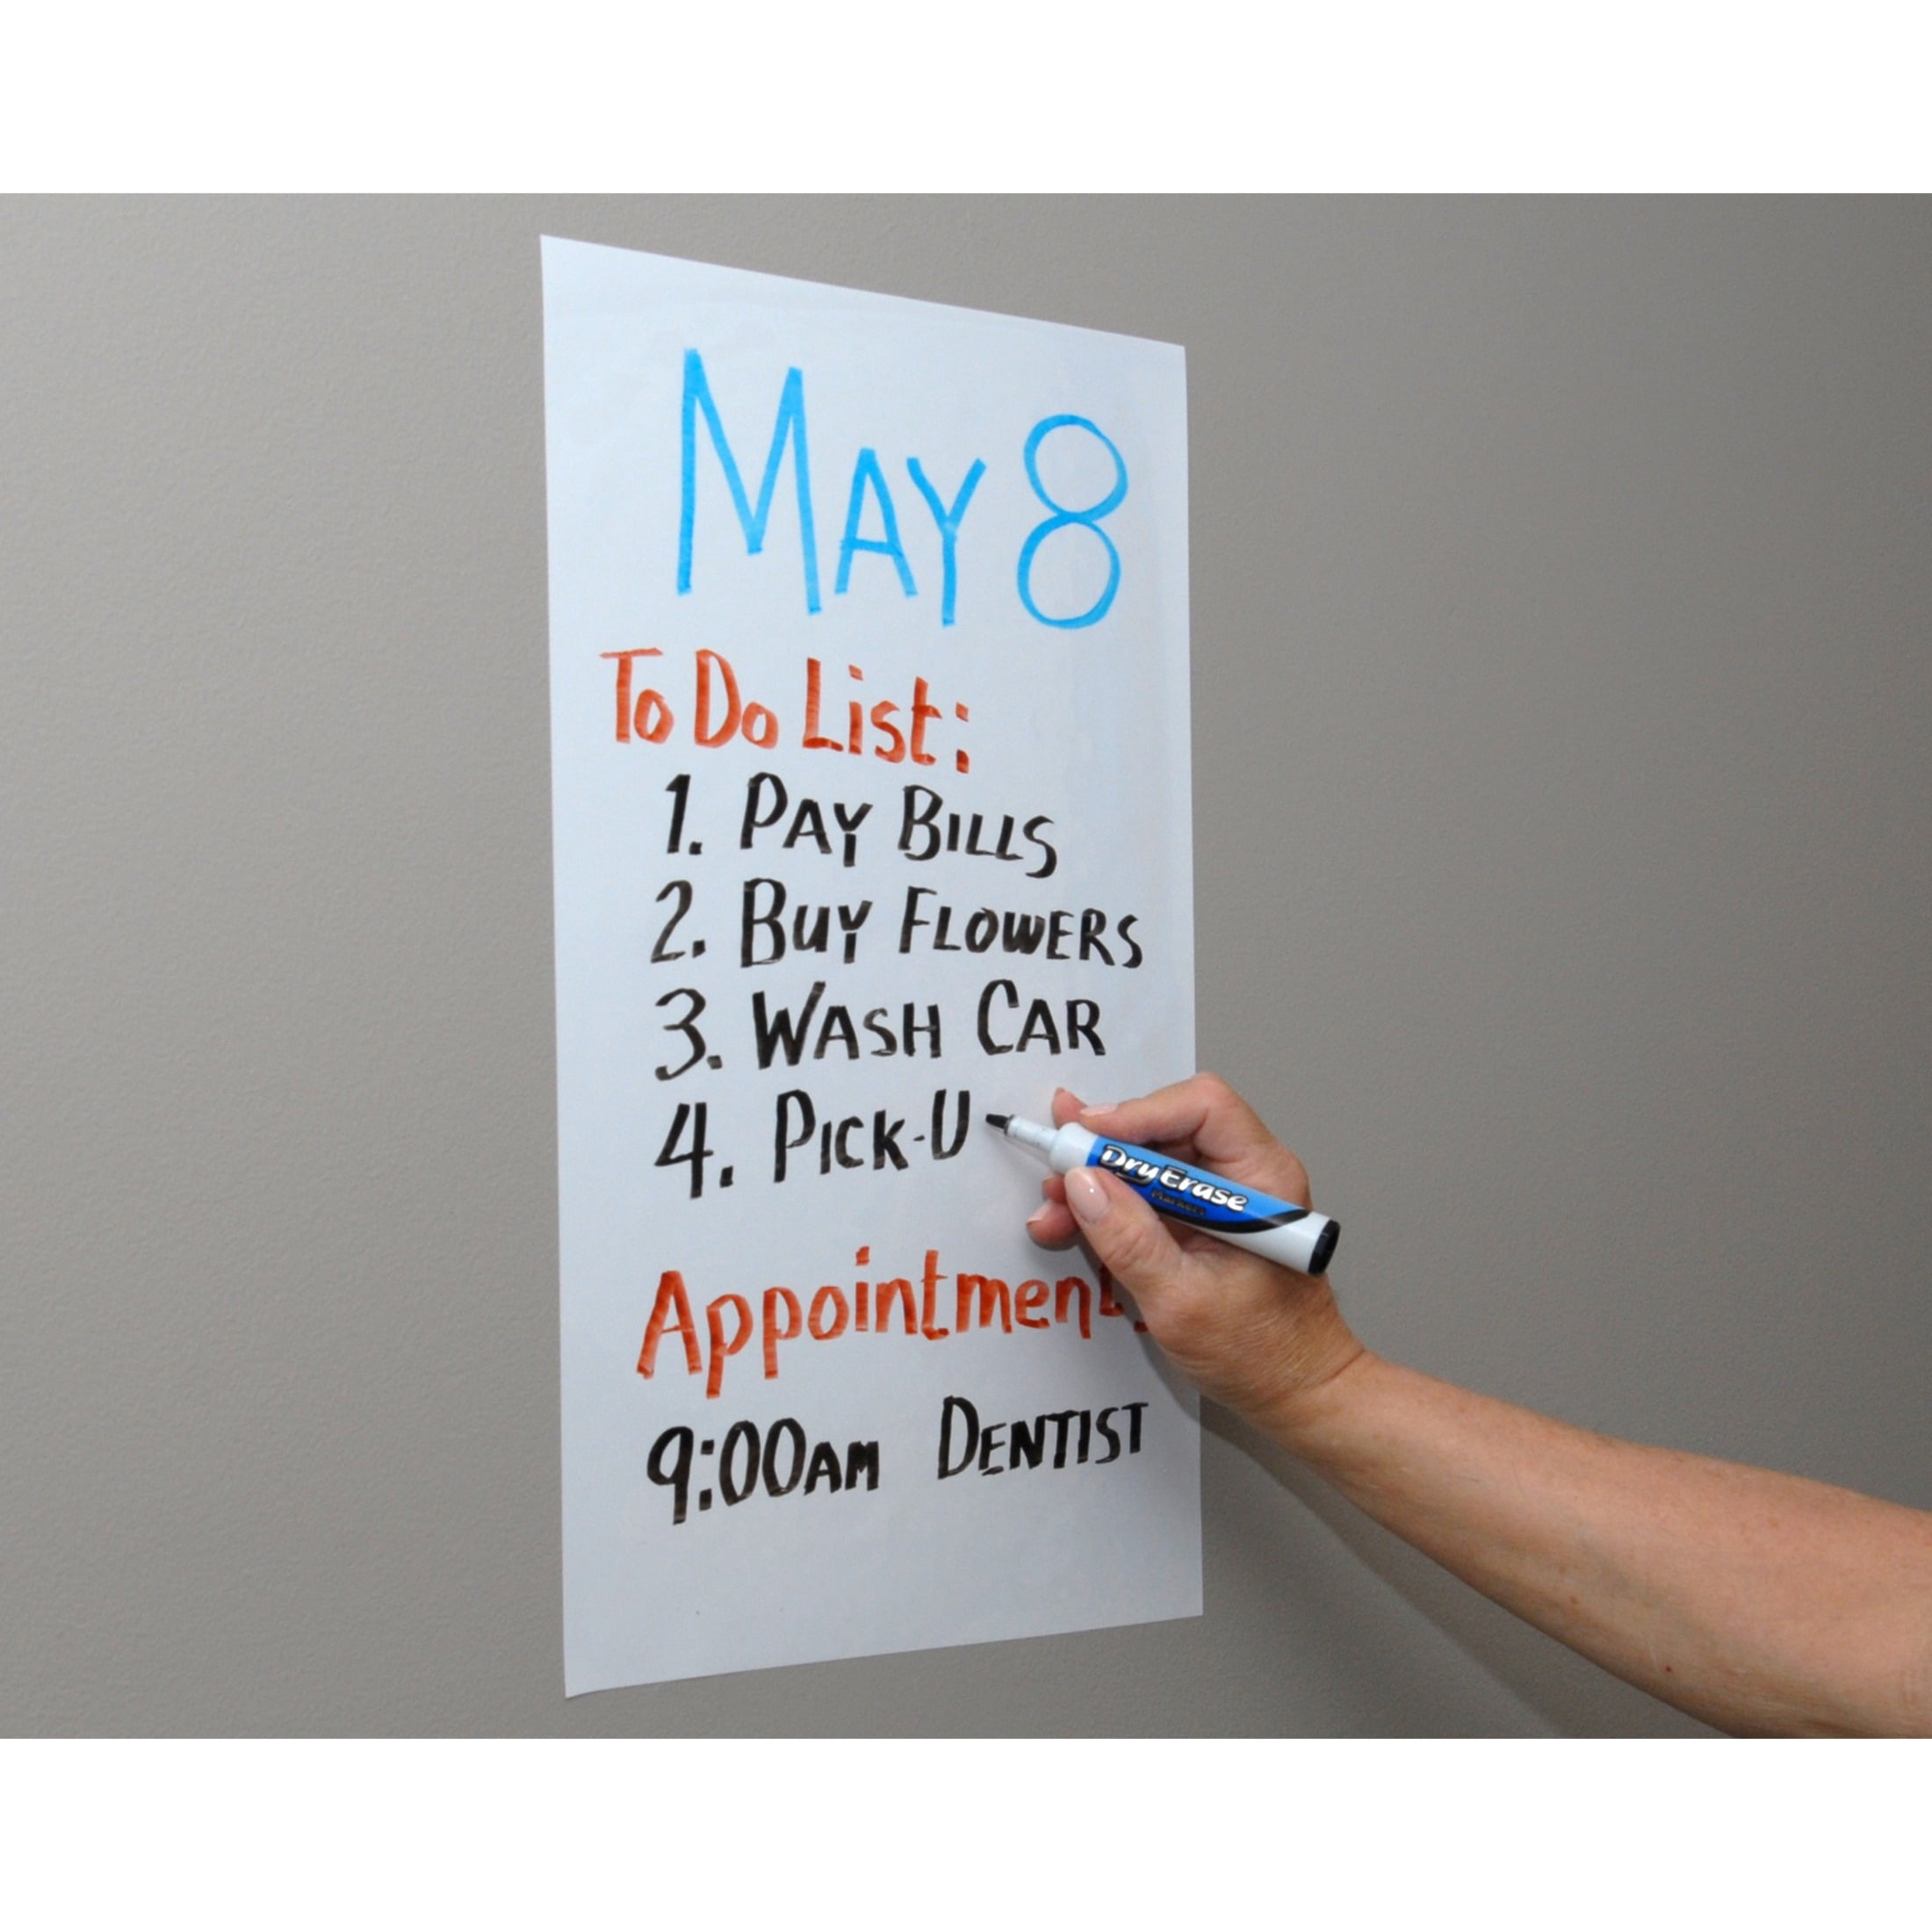 MAY 8
To Do List:
1. PAY BILLS
2. BUY FLOWERS
3. WASH CAR
4. PICK-U
Dry Erase
Marker
Appointments
9:00AM DENTIST